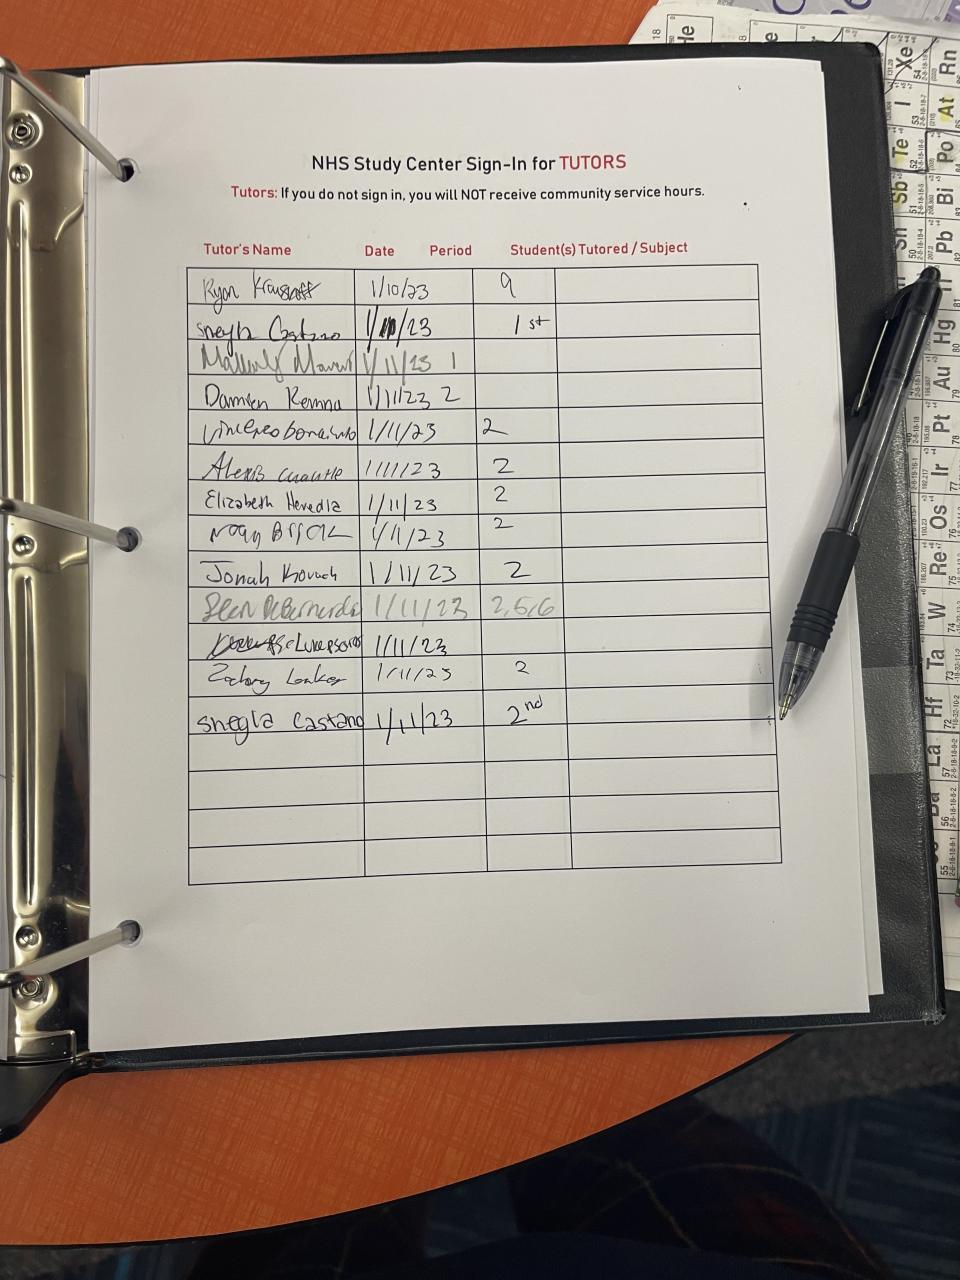 NHS Study Center Sign-In for TUTORS
Tutors: If you do not sign in, you will NOT receive community service hours.
Tutor's Name Date Period Student(s) Tutored / Subject
Ryan 1/10/23 9
Snegla Castano 1/11/23 1st
1/11/23 1
Damien Kemna 1/11/23 2
1/11/23 2
Alexis 1/11/23 2
Elizabeth Heredia 1/11/23 2
1/11/23 2
Jonah Kovach 1/11/23 2
Sean DeBernardo 1/11/23 2,5,6
1/11/23
Zachary 1/11/23 2
Snegla Castano 1/11/23 2nd
18
He
Xe
54
I
53
Te
52
Sb
51
Sn
50
Rn
At
Po
Bi
Pb
82
81
Hg
80
Au
79
Pt
78
Ir
77
Os
76
Re
75
W
74
Ta
73
Hf
72
La
57
56
55